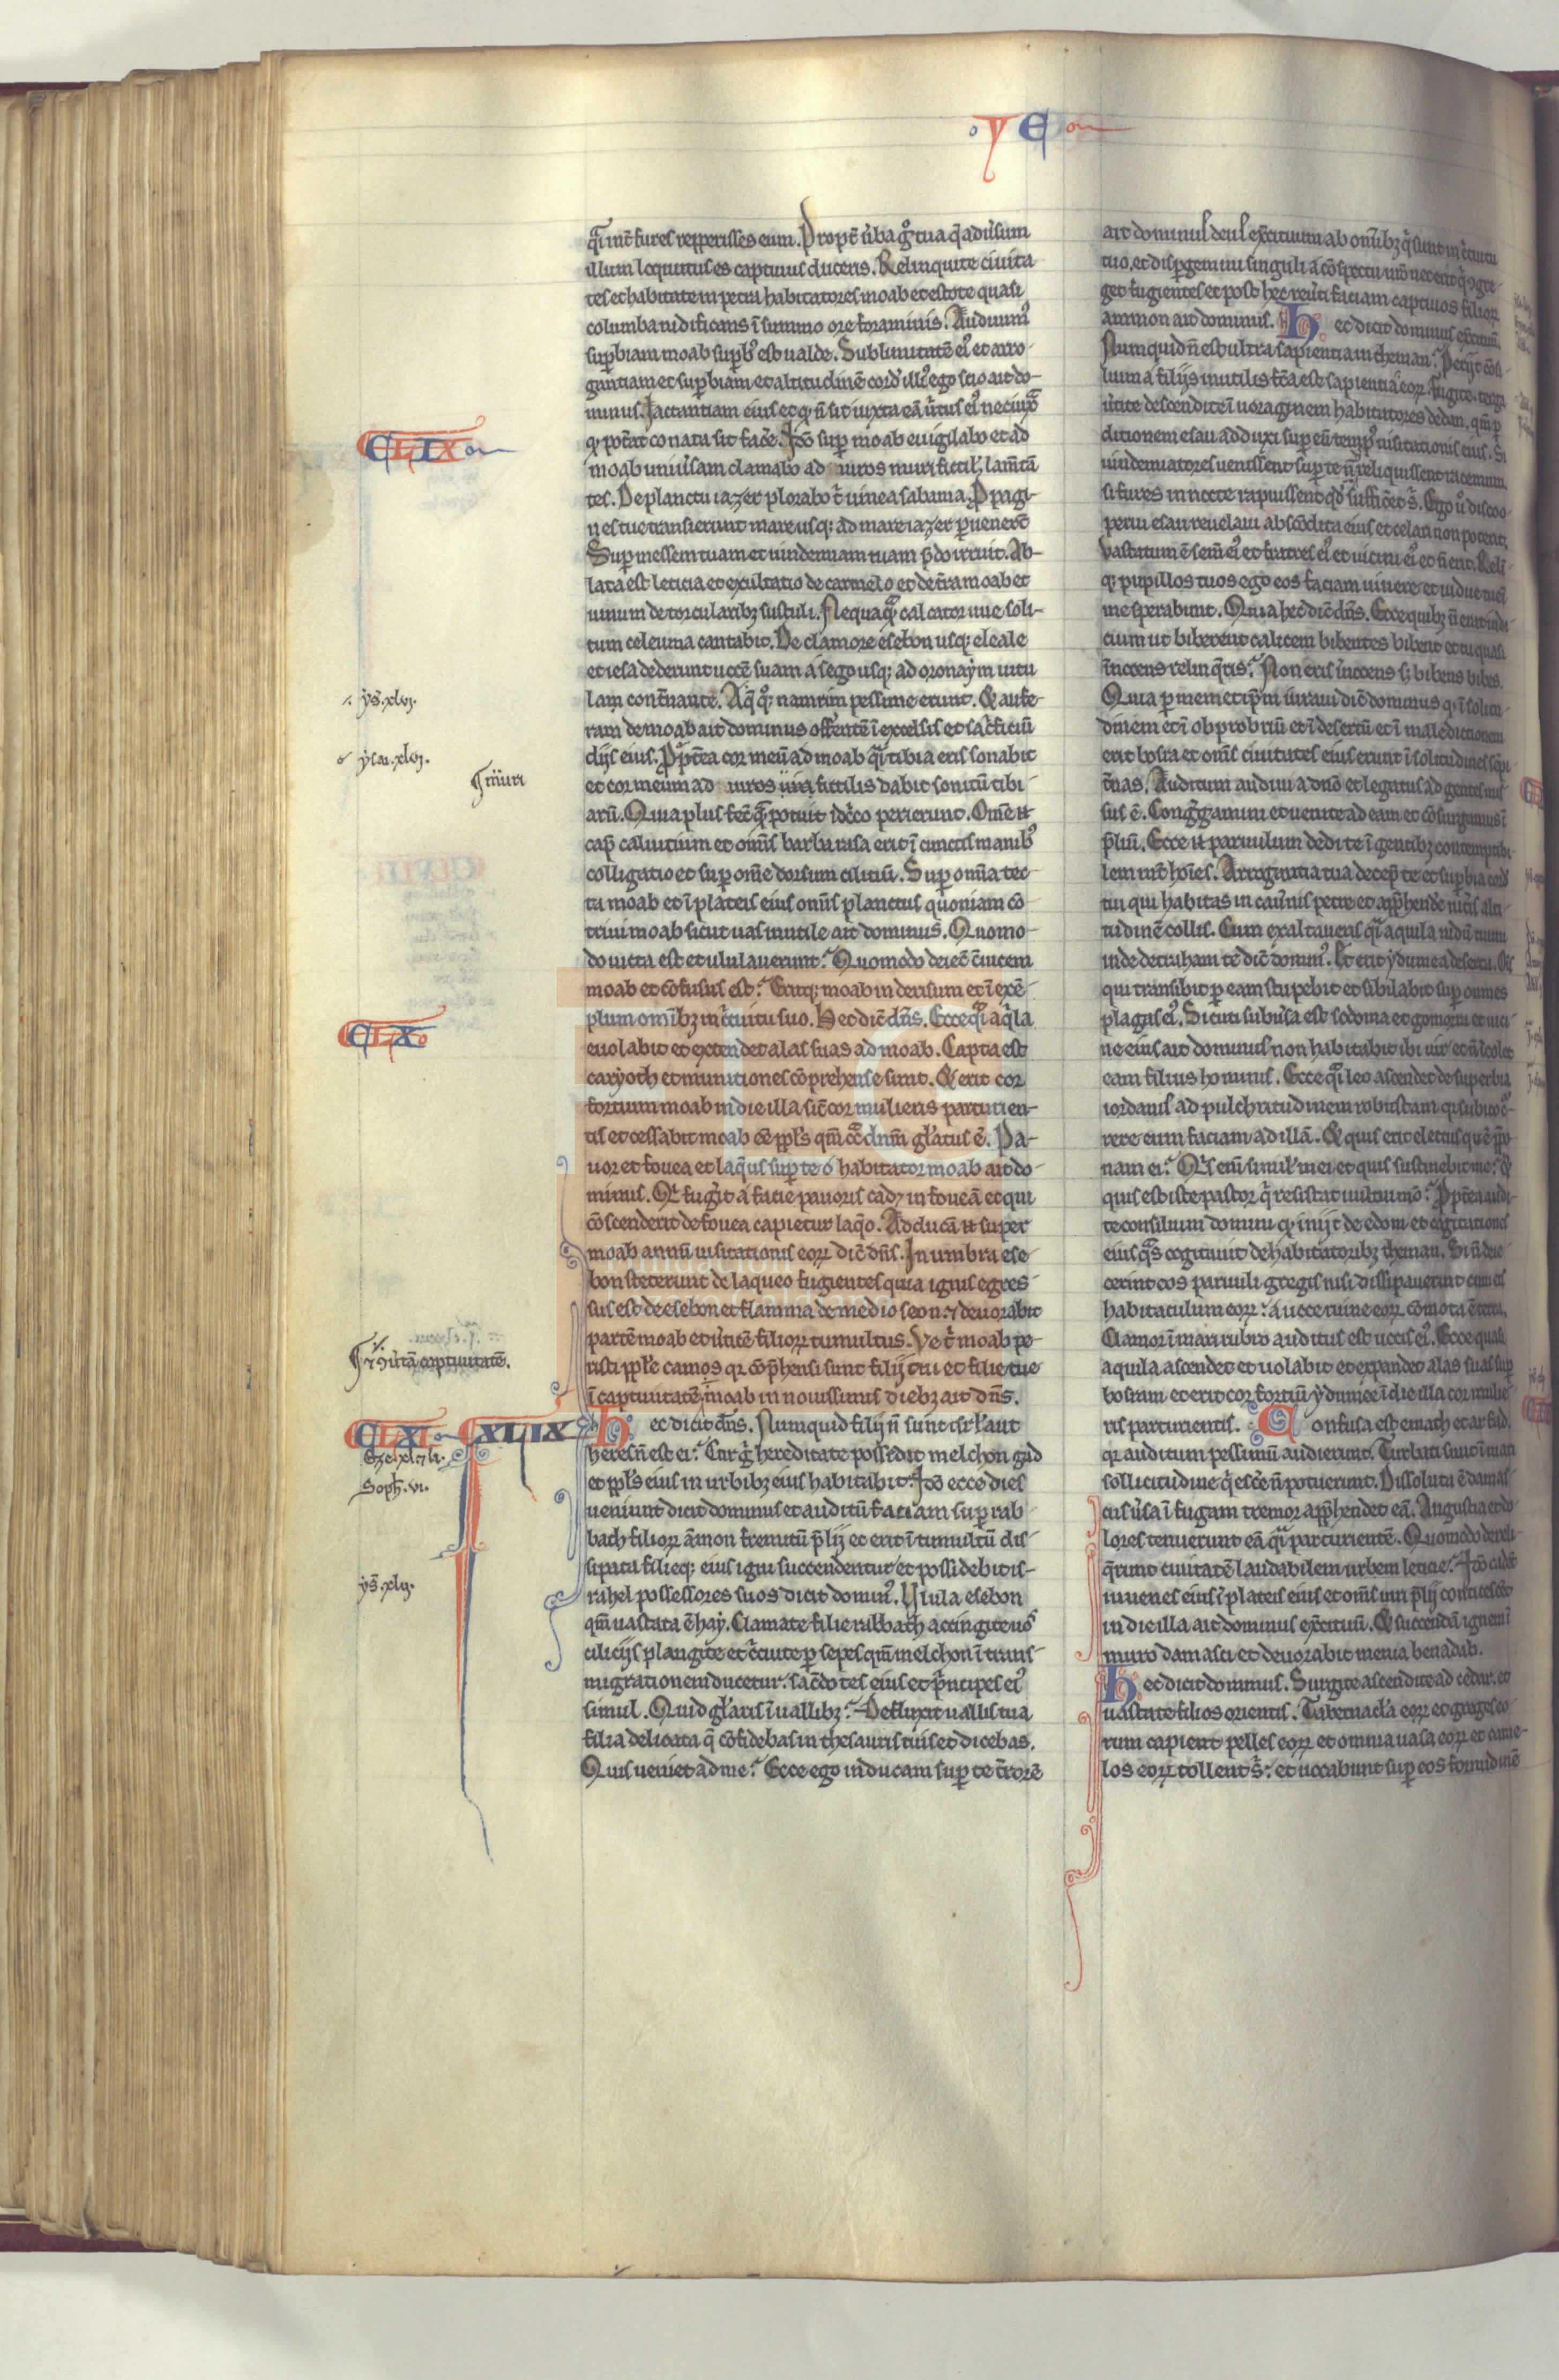 yE
q̄i int̄ fures repperisses eum. Propt̄ ūba g̊ tua q̄ adūsum
illum loquutus es captiuus duceris. Relinquite ciuita
tes et habitate in petra habitatores moab et estote quasi
columba nidificans ī summo ore foraminis. Audiuim9
suꝑbiam moab suꝑb9 est ualde. Sublimitatē ei9 et arro-
gantiam et suꝑbiam et altitudinē cord' illi9 ego scio ait do-
minus. Iactantiam eius et qͥ n̄ sit iuxta eā ūtus ei9 nec iux̄
qͥ pot̄at conata sit fac̄e. Iō suꝑ moab euiglabo et ad
moab uniūsam clamabo ad uiros muri fictil' lam̄tā
tes. De planctu iazer plorabo t̄ uinea sabama. Ppagi-
nes tue transierunt mare usq; ad mare iazer ꝑuenert̄
Suꝑ messem tuam et uindemiam tuam p̄do irruit. Ab-
lata est leticia et exultatio de carmelo et de t̄ra moab et
uinum de torcularibꝫ sustuli. Nequaq̄ calcator uue soli-
tum celeuma cantabit. De clamore esebon usq; eleale
et iesa dederunt uocē suam a segor usq; ad oronaym uitu
lam cont̄nantē. Aq̄ q; namrim pessime erunt. Et aufe-
ram de moab ait dominus offerentē ī excelsis et sac̄ficiū
dijs eius. Pꝑt̄ea cor meū ad moab q̄i tibia eris sonabit
et cor meum ad uiros fictilis dabit sonitū tibi
arū. Quia plus fec̄ q̄ potuit idc̄co perierunt. Om̄e
cap̄ caluitium et om̄is barba rasa erit ī cunctis manib9
colligatio et suꝑ om̄e dorsum cilitiū. Suꝑ omīa tec-
ta moab et ī plateis eius omīs planctus quoniam cō
triui moab sicut uas inutile ait dominus. Quomo-
do uicta est et ululauerunt? Quomodo deiec̄ c̄uicem
moab et cōfusus est? Eritq; moab in derisum et ī exē-
plum omībꝫ in c̄cuitu suo. Hec dic̄ dn̄s. Ecce q̄i aq̄la
euolabit et extendet alas suas ad moab. Capta est
caryoth et munitiones cōprehense sunt. Et erit cor
fortium moab in die illa sic̄ cor mulieris parturien-
tis et cessabit moab ēē ppl̄s qm̄ cōt̄ dnm̄ gl̄atus ē. Pa-
uor et fouea et laq̄us suꝑ te o habitator moab ait do-
minus. Qͥ fugīt a facie pauoris cadꝫ in foueā et qui
cōscenderit de fouea capietur laq̄o. Adducā super
moab annū uisitationis eoꝝ dic̄ dn̄s. In umbra ese-
bon steterunt de laqueo fugientes quia ignis egres-
sus est de esebon et flamma de medio seon ⁊ deuorabit
partē moab et ūticē filioꝝ tumultus. Ve t̄ moab pe-
risti ppl̄e camos qꝛ cōp̄hensi sunt filij tui et filie tue
ī captiuitatē moab in nouissimis diebꝫ ait dn̄s.
Hec dicit dn̄s. Numquid filij n̄ sunt isrl̄ aut
heres n̄ est ei? Cur g̊ hereditate possedit melchon gad
et ppl̄s eius in urbibꝫ eius habitabit? Iō ecce dies
ueniunt dicit dominus et auditū faciam suꝑ rab-
bath filioꝝ āmon fremitū p̄lij et erit ī tumultū dis-
sipata filieq; eius igni succendentur et possidebit is-
rahel possessores suos dicit domin9. Vlula esebon
qm̄ uastata ē hay. Clamate filie rabbath accingite uos
cilicijs plangite et c̄cuite ꝑ sepes qm̄ melchon ī trans-
migrationem ducetur. sac̄dotes eius et p̄ncipes ei9
simul. Quid gl̄aris ī uallibꝫ? Defluxit uallis tua
filia delicata q̄ cōfidebas in thesauris tuis et dicebas.
Quis ueniet ad me? Ecce ego inducam suꝑ te t̄rorē
ait dominus deus ex̄cituum ab omībꝫ q̄ sunt in c̄cuitu
tuo. et disꝑgemini singuli a cōspectu uro nec erit qͥ ↄgre-
get fugientes et post hec reūti faciam captiuos filioꝝ
ammon ait dominus. Hec dicit dominus ex̄cituū.
Numquid n̄ est ultra sapientia in theman? Perijt cōsi-
lium a filijs inutilis fc̄a est sapientia eoꝝ. Fugite. terga
ūtite descendite ī uoraginem habitatores dedan. qm̄ ꝑ
ditionem esau adduxi suꝑ eū temp9 uisitationis eius. Si
uindemiatores uenissent suꝑ te n̄ reliquissent racemum.
si fures in nocte rapuissent qd' sufficēt s̄. Ego ū discoo-
perui esau reuelaui abscōdita eius et celari non poterit.
Vastatum ē sem̄ ei9 et fratres ei9 et uicini ei9 et n̄ erit. Reli-
q; pupillos tuos ego eos faciam uiuere et uidue tue ī
me sperabunt. Quia hec dic̄ dn̄s. Ecce quibꝫ n̄ erat iudi-
cium ut biberent calicem bibentes bibent et tu quasi
īnocens relinq̄ris? Non eris īnocens sꝫ bibens bibes.
Quia ꝑ memetip̄m iuraui dic̄ dominus qͥ ī solitu-
dinem et ī obprobriū et ī desertū et ī maledictionem
erit bosra et om̄s ciuitates eius erunt ī solitudines sēpi-
t̄nas. Auditum audiui a dn̄o et legatus ad gentes mis-
sus ē. Cong̊gamini et uenite ad eam et cōsurgamus ī
p̄liū. Ecce paruulum dedi te ī gentibꝫ contemptibi-
lem int̄ hoīes. Arrogantia tua decep̄ te et suꝑbia cord'
tui qui habitas in cau̅nis petre et app̄hend'e nitis alti-
tudinē collis. Cum exaltaueris q̄i aquila nidū tuum
inde detraham te dic̄ domin9. Et erit ydumea deserta. Om̄s
qui transibit ꝑ eam stupebit et sibilabit suꝑ omnes
plagas ei9. Sicuti subūsa est sodoma et gomorra et uici-
ne eius ait dominus non habitabit ibi uir et n̄ īcolet
eam filius hominis. Ecce q̄i leo ascendet de superbia
iordanis ad pulchritudinem robustam qꝛ subito cur-
rere eum faciam ad illā. Et quis erit electus quē p̄po-
nam ei? Qis eni simil' mei et quis sustinebit me? Et
quis est iste pastor q̄ resistat uultui mō? Pꝑt̄ea audi-
te consilium domini qͥ inijt de edom et cogitationes
eius q̄s cogitauit de habitatoribꝫ theman. Si n̄ deie-
cerint eos paruuli gregis nisi dissipauerint cum eis
habitaculum eoꝝ. a uoce ruine eoꝝ cōmota ē terra.
Clamor ī mari rubro auditus est uocis ei9. Ecce quasi
aquila ascendet et uolabit et expandet alas suas suꝑ
bosram et erit cor fortiū ydumee ī die illa cor mulie-
ris parturientis. Confusa est emath et arfad.
qꝛ auditum pessimū audierunt. Turbati sunt ī mari
sollicitudine q̄esc̄e n̄ potuerunt. Dissoluta ē damas-
cus ūsa ī fugam tremor app̄hendet eā. Angustia et do-
lores tenuerunt eā q̄i parturientē. Quomodo dereli-
q̄runt ciuitatē laudabilem urbem leticie? Iō cadēt
iuuenes eius ī plateis eius et om̄s uiri p̄lij conticescēt
in die illa ait dominus ex̄cituū. Et succendā ignem ī
muro damasci et deuorabit menia benadab.
Hec dicit dominus. Surgite ascendite ad cedar. et
uastate filios orientis. Tabernac̄la eoꝝ et greges eo-
rum capient pelles eoꝝ et omnia uasa eoꝝ et came-
los eoꝝ tollent s̄. et uocabunt suꝑ eos formidinē
CLIX
ys̄. xlvj.
ysa. xlvj.
muri
CLX
⁊ ↄūtā captiuitatē.
CLXI
XLIX
Soph̄. vi.
ys̄. xlij.